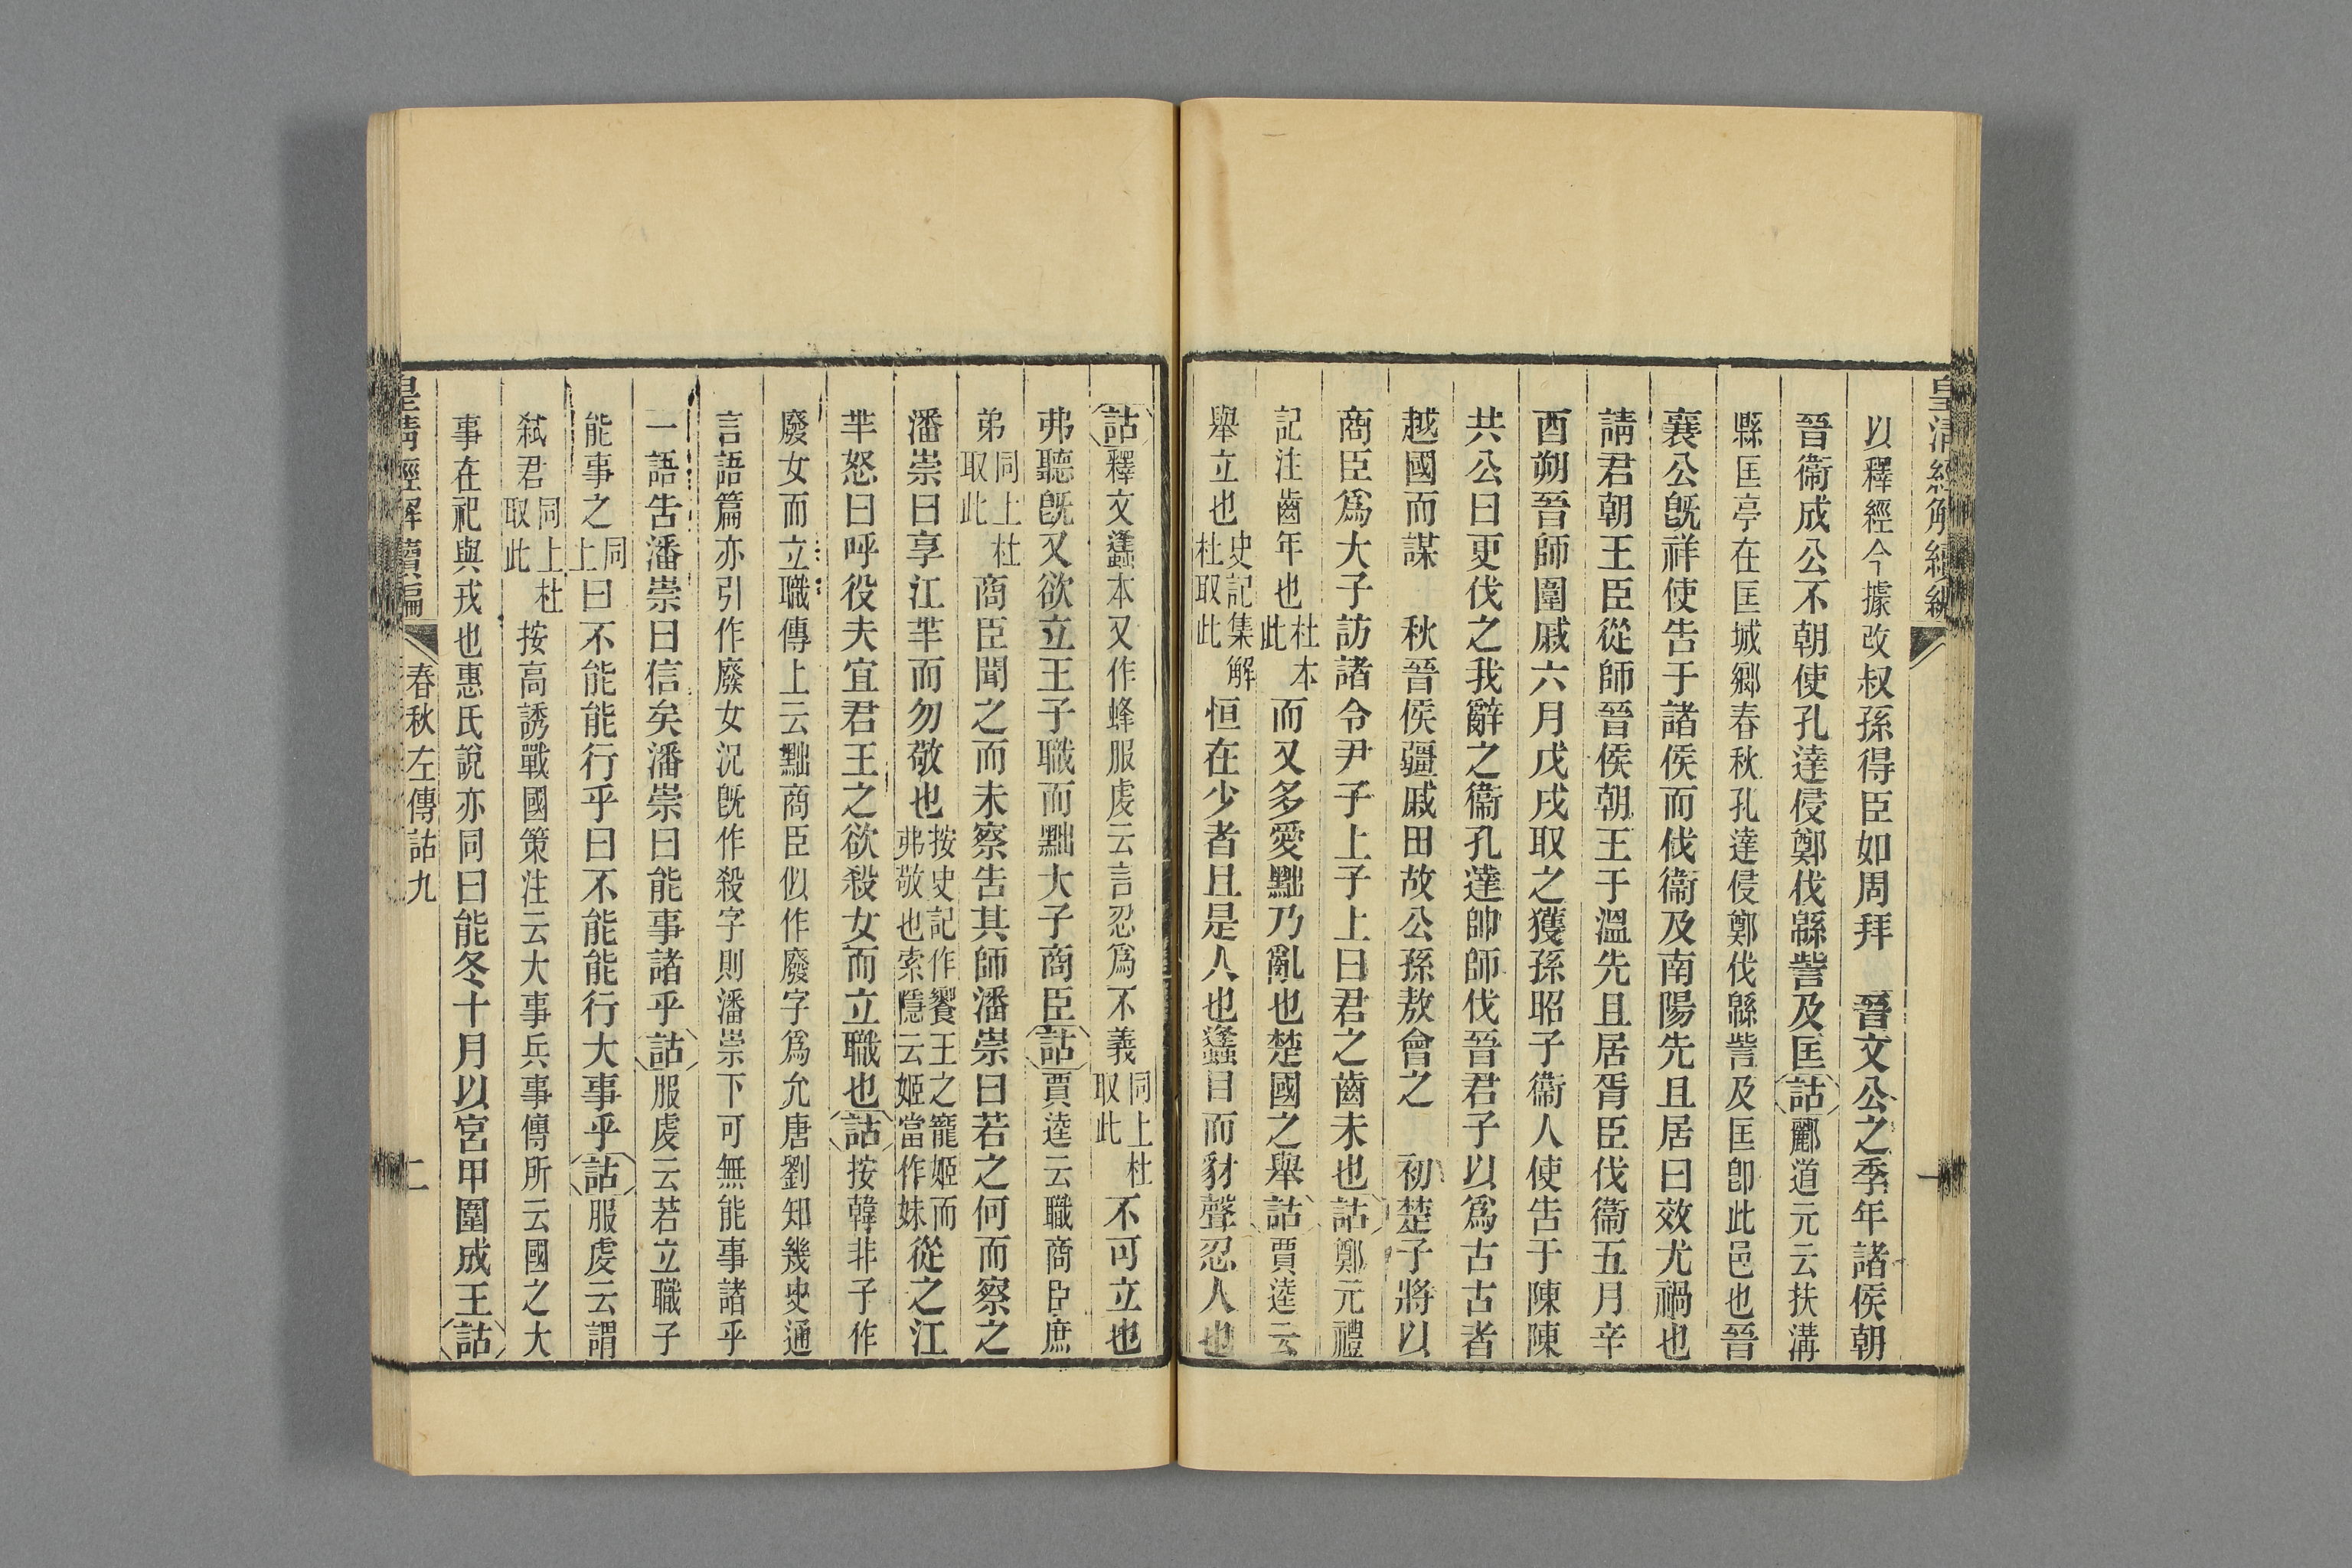 皇清經解續編
以釋經今據改叔孫得臣如周拜　晉文公之季年諸侯朝
晉衞成公不朝使孔達侵鄭伐緜訾及匡詁酈道元云扶溝
縣匡亭在匡城鄉春秋孔達侵鄭伐緜訾及匡卽此邑也晉
襄公旣祥使告于諸侯而伐衞及南陽先且居曰效尤禍也
請君朝王臣從師晉侯朝王于溫先且居胥臣伐衞五月辛
酉朔晉師圍戚六月戊戌取之獲孫昭子衞人使告于陳陳
共公曰更伐之我辭之衞孔達帥師伐晉君子以爲古古者
越國而謀　秋晉侯疆戚田故公孫敖會之　初楚子將以
商臣爲大子訪諸令尹子上子上曰君之齒未也詁鄭元禮
記注齒年也杜本此而又多愛黜乃亂也楚國之舉詁賈逵云
舉立也史記集解杜取此恒在少者且是人也蠭目而豺聲忍人也
詁釋文蠭本又作蜂服虔云言忍爲不義同上杜取此不可立也
弗聽旣又欲立王子職而黜大子商臣詁賈逵云職商臣庶
弟同上杜取此商臣聞之而未察告其師潘崇曰若之何而察之
潘崇曰享江羋而勿敬也按史記作饗王之寵姬而弗敬也索隱云姬當作妹從之江
羋怒曰呼役夫宜君王之欲殺女而立職也詁按韓非子作
廢女而立職傳上云黜商臣似作廢字爲允唐劉知幾史通
言語篇亦引作廢女況旣作殺字則潘崇下可無能事諸乎
一語告潘崇曰信矣潘崇曰能事諸乎詁服虔云若立職子
能事之同上曰不能能行乎曰不能能行大事乎詁服虔云謂
弑君同上杜取此按高誘戰國策注云大事兵事傳所云國之大
事在祀與戎也惠氏說亦同曰能冬十月以宮甲圍成王詁
皇清經解續編
春秋左傳詁九
二